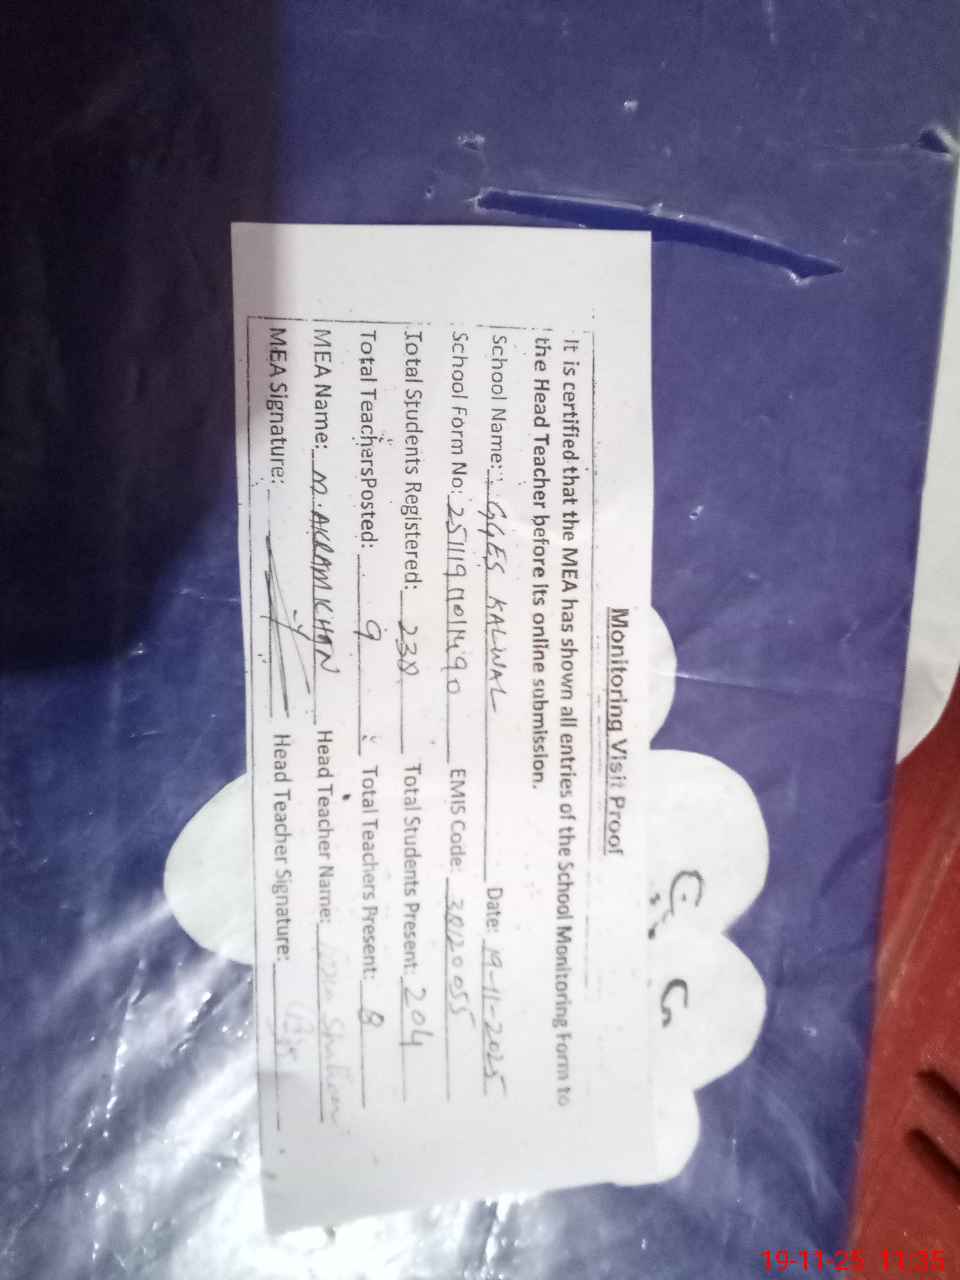 Monitoring Visit Proof
It is certified that the MEA has shown all entries of the School Monitoring Form to
the Head Teacher before its online submission.
School Name: GGES KALWAL Date: 19-11-2025
School Form No: EMIS Code: 38120055
Total Students Registered: 238 Total Students Present: 204
Total TeachersPosted: 9 Total Teachers Present: 8
MEA Name: M. AKRAM KHAN Head Teacher Name:
MEA Signature: Head Teacher Signature:
19-11-25 11:35